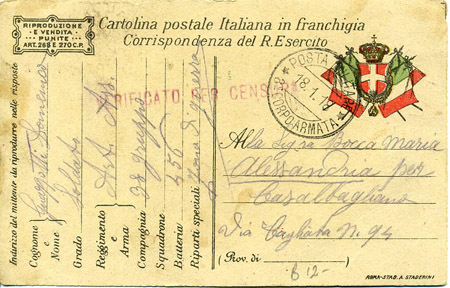 RIPRODUZIONE
E VENDITA
PUNITE
ART. 268 E 270 C.P.
Cartolina postale Italiana in franchigia
Corrispondenza del R. Esercito
VERIFICATO PER CENSURA
POSTA MILITARE
18.1.19
CORPO ARMATA
Indirizzo del mittente da riprodurre nelle risposte
Cognome e Nome Domenico
Grado Soldato
Reggimento e Arma Art.
Compagnia 98 gruppo
Squadrone
Batteria 255
Riparti speciali Zona di guerra
Alla Sig.ra Bocca Maria
Alessandria per
Casalbagliano
Via Cagliata N. 94
(Prov. di )
ROMA-STAB. A. STADERINI